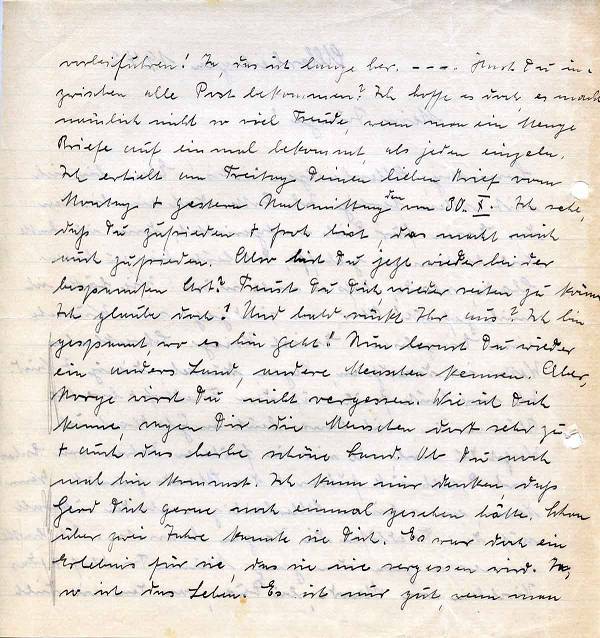 vorbeiführen! Ja, das ist lange her. ---. Hast Du in-
zwischen alle Post bekommen? Ich hoffe es doch, es macht
nämlich nicht so viel Freude, wenn man ein Menge
Briefe auf einmal bekommt, als jeden einzeln.
Ich erhielt am Freitag Deinen lieben Brief vom
Montag + gestern Nachmittag den vom 30. X. Ich sehe,
daß Du zufrieden + froh bist, das macht mich
auch zufrieden. Also bist Du jetzt wieder bei der
bespannten Art? Freust Du Dich, wieder reiten zu können
Ich glaube doch! Und bald rückt Ihr aus? Ich bin
gespannt, wo es hin geht! Nun lernst Du wieder
ein anders Land, andere Menschen kennen. Aber,
Norge wirst Du nicht vergessen. Wie ich Dich
kenne, sagen Dir die Menschen dort sehr zu
+ auch das herbe schöne Land. Ob Du noch
mal hin kommst? Ich kann mir denken, daß
Gerd Dich gerne noch einmal gesehen hätte. Schon
über zwei Jahre kannte sie Dich. Es war doch ein
Erlebnis für sie, das sie nie vergessen wird. Ja,
so ist das Leben. Es ist nur gut, wenn man